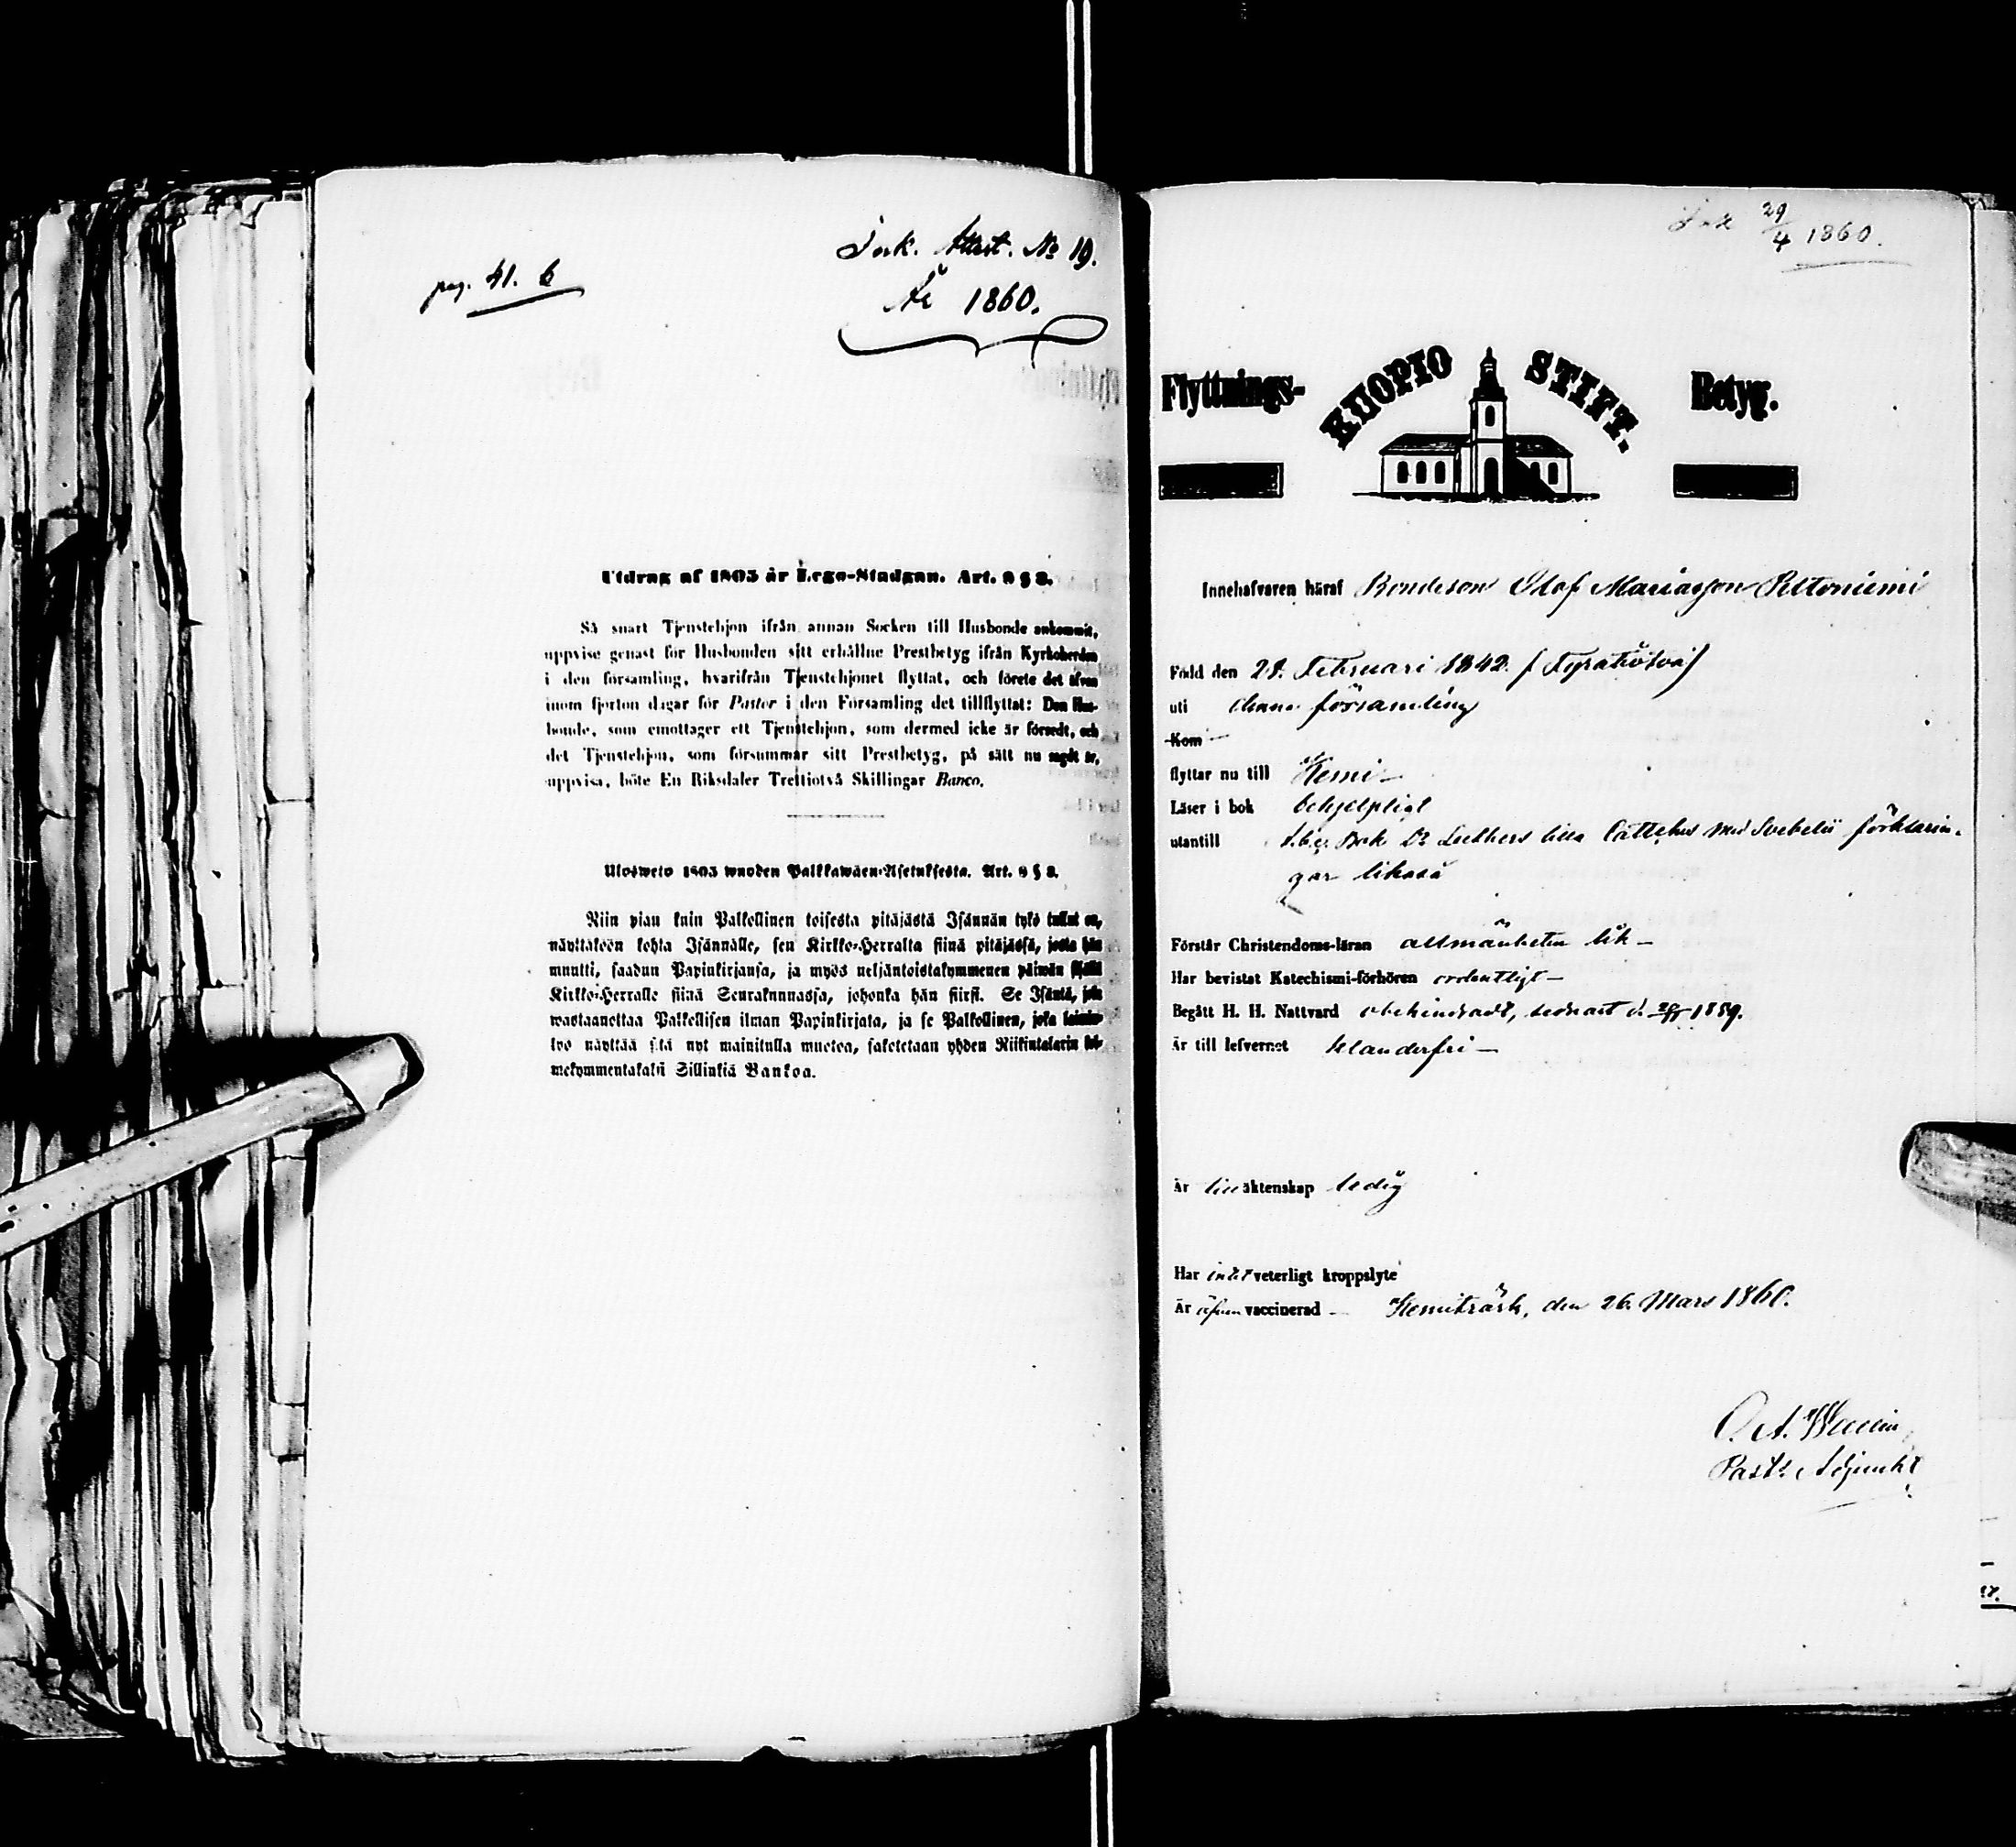 pag. 41. b
Ink. Attest. No 19.
År 1860.
Utdrag af 1805 år Lego-Stadgan. Art. 9 § 8.
Så snart Tjenstehjon ifrån annan Socken till Husbonde ankommit,
uppvise genast för Husbonden sitt erhållne Prestbetyg ifrån Kyrkoherden
i den församling, hvarifrån Tjenstehjonet flyttat, och förete det äfven
inom fjorton dagar för Pastor i den Församling det tillflyttat: Den Hus-
bonde, som emottager ett Tjenstehjon, som dermed icke är försedt, och
det Tjenstehjon, som försummar sitt Prestbetyg, på sätt nu sagdt är,
uppvisa, böte En Riksdaler Trettiotvå Skillingar Banco.
Ulosweto 1805 wuoden Palkkawäen-Asetuksesta. Art. 9 § 8.
Niin pian kuin Palkollinen toisesta pitäjästä Isännän tykö tullut on,
näyttäköön kohta Isännälle, sen Kirkko-Herralta siinä pitäjässä, josta hän
muutti, saadun Papinkirjansa, ja myös neljäntoistakymmenen päiwän sisällä
Kirkko-Herralle siinä Seurakunnassa, johonka hän siirsi. Se Isäntä, joka
wastaanottaa Palkollisen ilman Papinkirjata, ja se Palkollinen, joka laimin-
lyö näyttää sitä nyt mainitulla muotoa, sakotetaan yhden Riikintalarin kol-
mekymmentäkaksi Sillinkiä Bankoa.
Ink 29/4 1860.
Flyttnings- KUOPIO STIFT. Betyg.
Innehafvaren häraf Bondeson Olof Mariasson Peltoniemi
Född den 28. Februari 1842. / Fyratiotvå /
uti denna församling
Kom
flyttar nu till Kemi
Läser i bok behjelpligt
utantill Abc Bok Dr Luthers lilla Cattches med Svebelii förklarin-
gar likaså
Förstår Christendoms-läran allmänheten lik
Har bevistat Katechismi-förhören ordentligt
Begått H. H. Nattvard obehindradt, senast d. 1859.
Är till lefvernet klanderfri
Är till äktenskap ledig
Har intet veterligt kroppslyte
Är äfven vaccinerad Kemiträsk, den 26. Mars 1860.
O. A.
Pasts Adjunkt